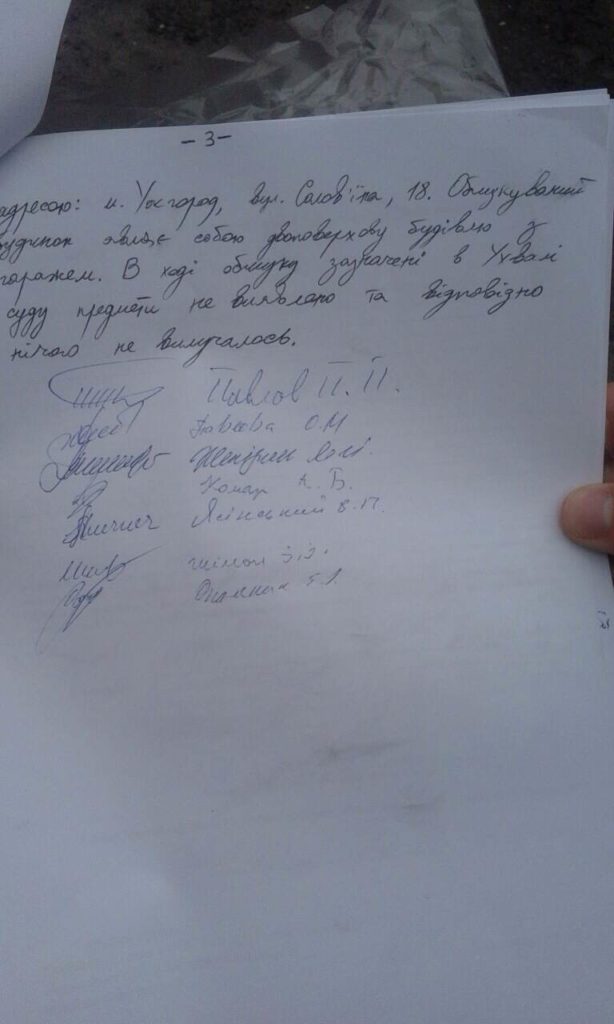 - 3 -
адресою: м. Ужгород, вул. Солов'їна, 18. Обшукуваний
будинок являє собою двоповерхову будівлю з
гаражем. В ході обшуку зазначені в Ухвалі
суду предмети не виявлено та відповідно
нічого не вилучалось.
Павлов П. П.
О.М
Комар К. Б.
Ясінський В.П.